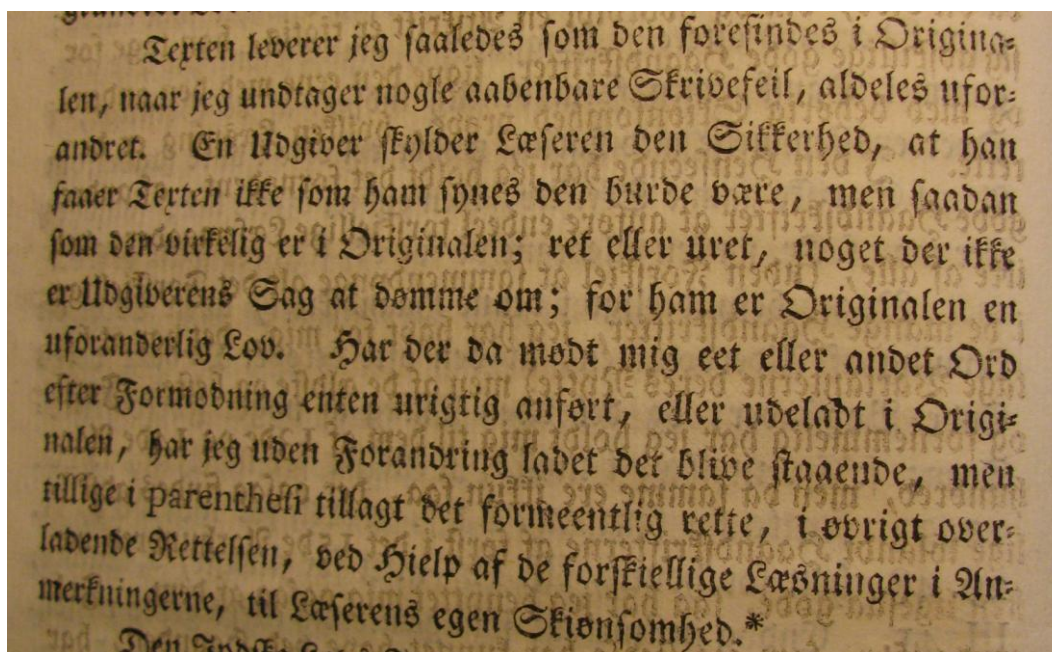 Texten leverer jeg saaledes som den forefindes i Origina-
len, naar jeg undtager nogle aabenbare Skrivefeil, aldeles ufor-
andret. En Udgiver skylder Læseren den Sikkerhed, at han
faaer Texten ikke som ham synes den burde være, men saadan
som den virkelig er i Originalen; ret eller uret, noget der ikke
er Udgiverens Sag at dømme om; for ham er Originalen en
uforanderlig Lov. Har der da mødt mig eet eller andet Ord
efter Formodning enten urigtig anført, eller udeladt i Origi-
nalen, har jeg uden Forandring ladet det blive staaende, men
tillige i parenthesi tillagt det formeentlig rette, i øvrigt over-
ladende Rettelsen, ved Hielp af de forskiellige Læsninger i An-
merkningerne, til Læserens egen Skiønsomhed.*
Den